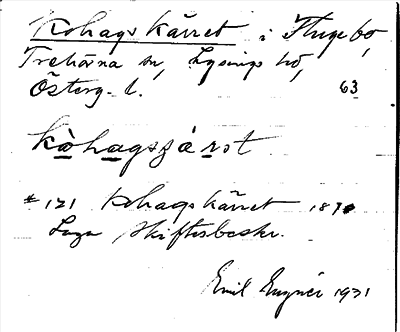 Kohagskärret i Flugebo,
Trehörna sn, Lysings hd,
Österg. l. 63
kòhagsʒárət
# 121 Kohagskärret 1890
Laga skiftesbeskr.
Emil 1931